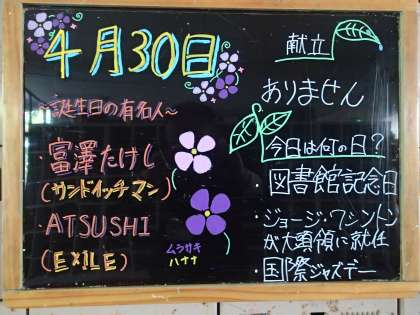 4月30日
~誕生日の有名人~
・富澤たけし
(サンドイッチマン)
・ATSUSHI
(EXILE)
ムラサキ
ハナナ
献立
ありません
今日は何の日?
・図書館記念日
・ジョージ・ワシントン
が大頭領に就任
・国際ジャズデー